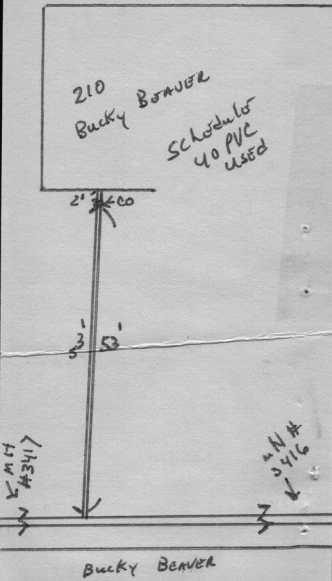 210
Bucky BEAVER
Schedule
40 PVC
used
2' CO
53' 53'
MH
#3417
MH #
3416
Bucky BEAVER